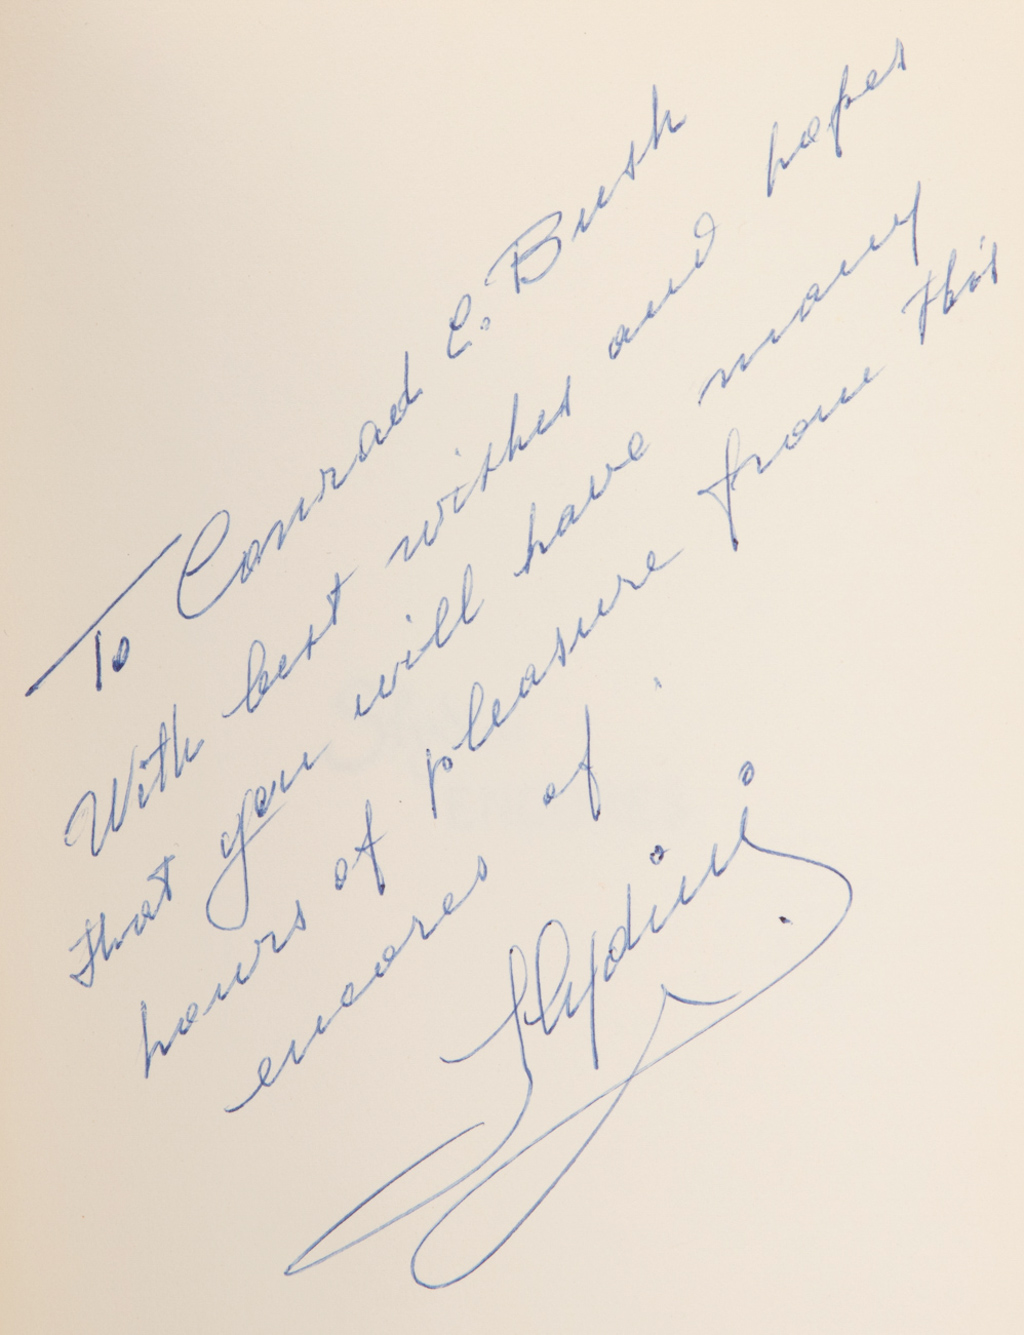 To Conrad C. Bush
With best wishes and hopes
that you will have many
hours of pleasure from this
encores of
Slydini